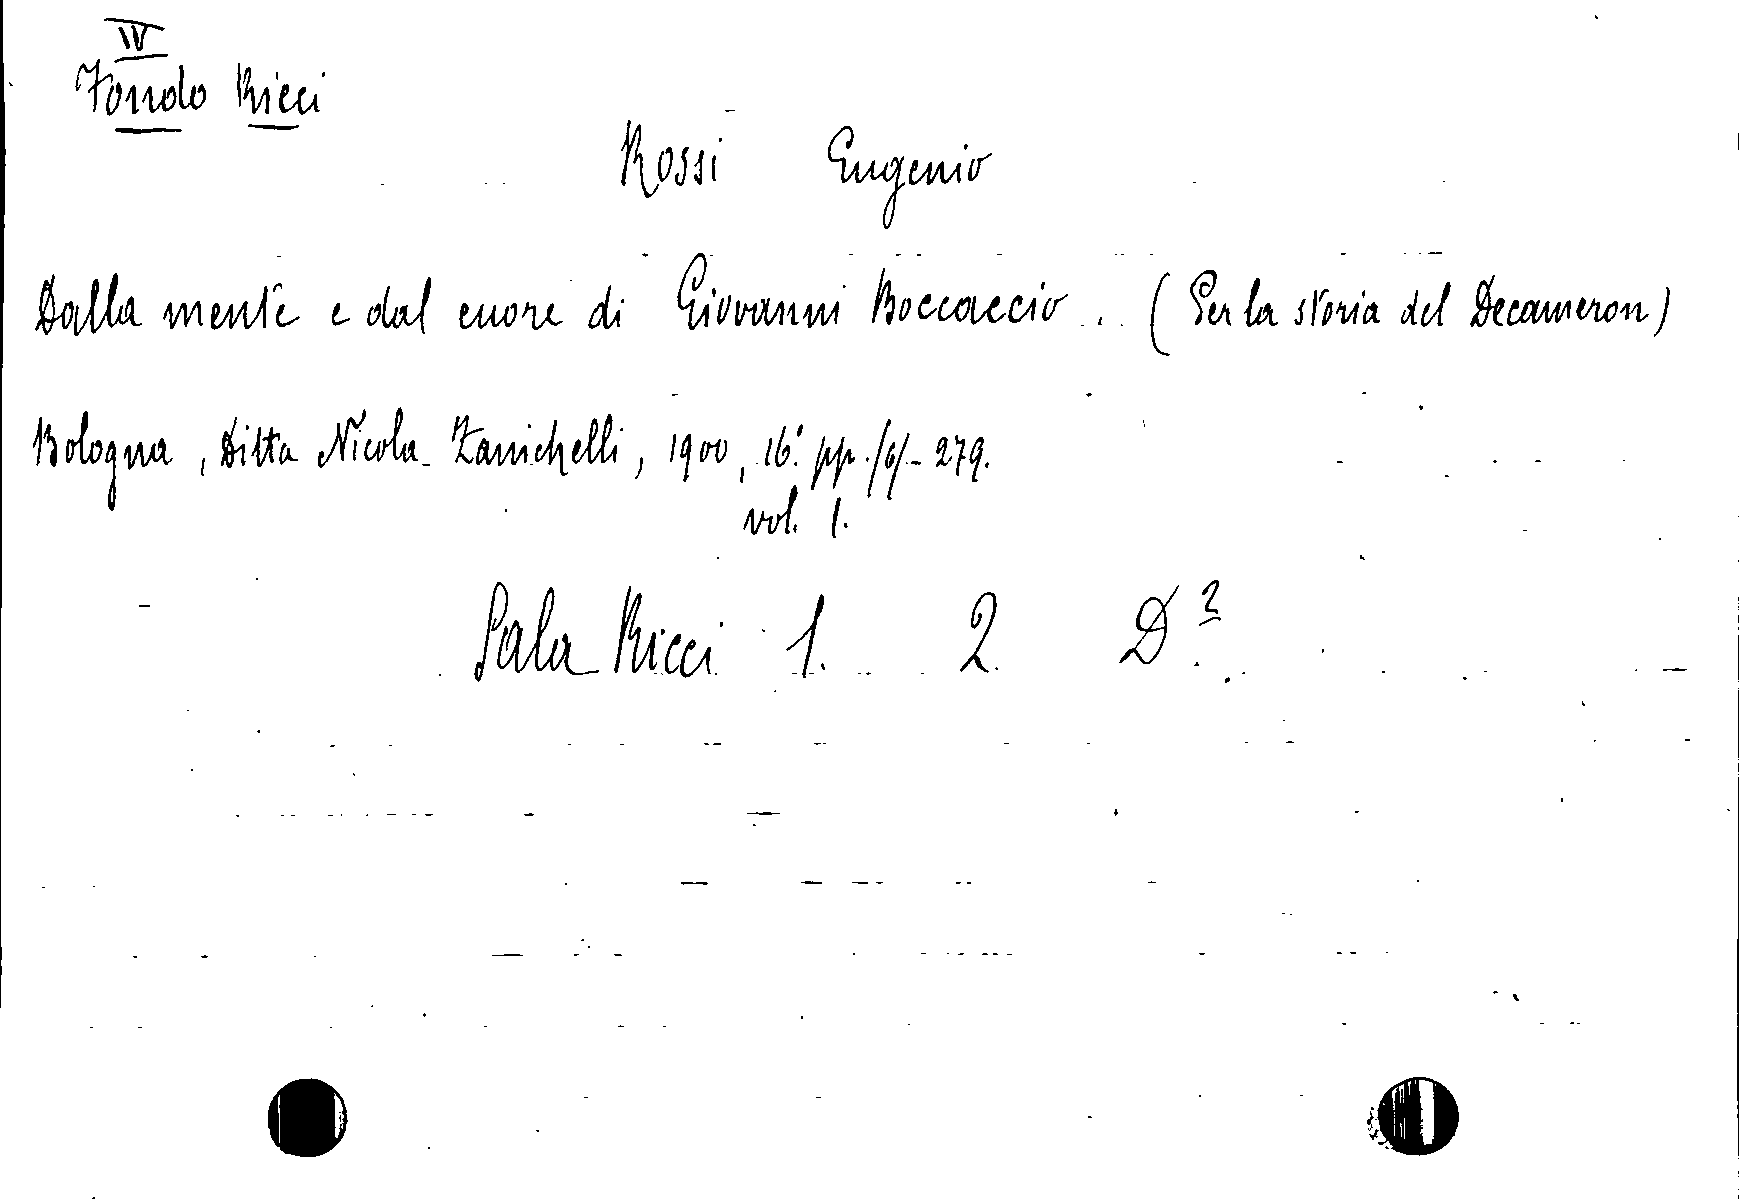 IV
Fondo Ricci
Rossi Eugenio
Dalla mente e dal cuore di Giovanni Boccaccio. (Per la storia del Decameron)
Bologna, Ditta Nicola Zanichelli, 1900, 16° pp. /6/-279.
vol. 1.
Sala Ricci 1. 2 D²